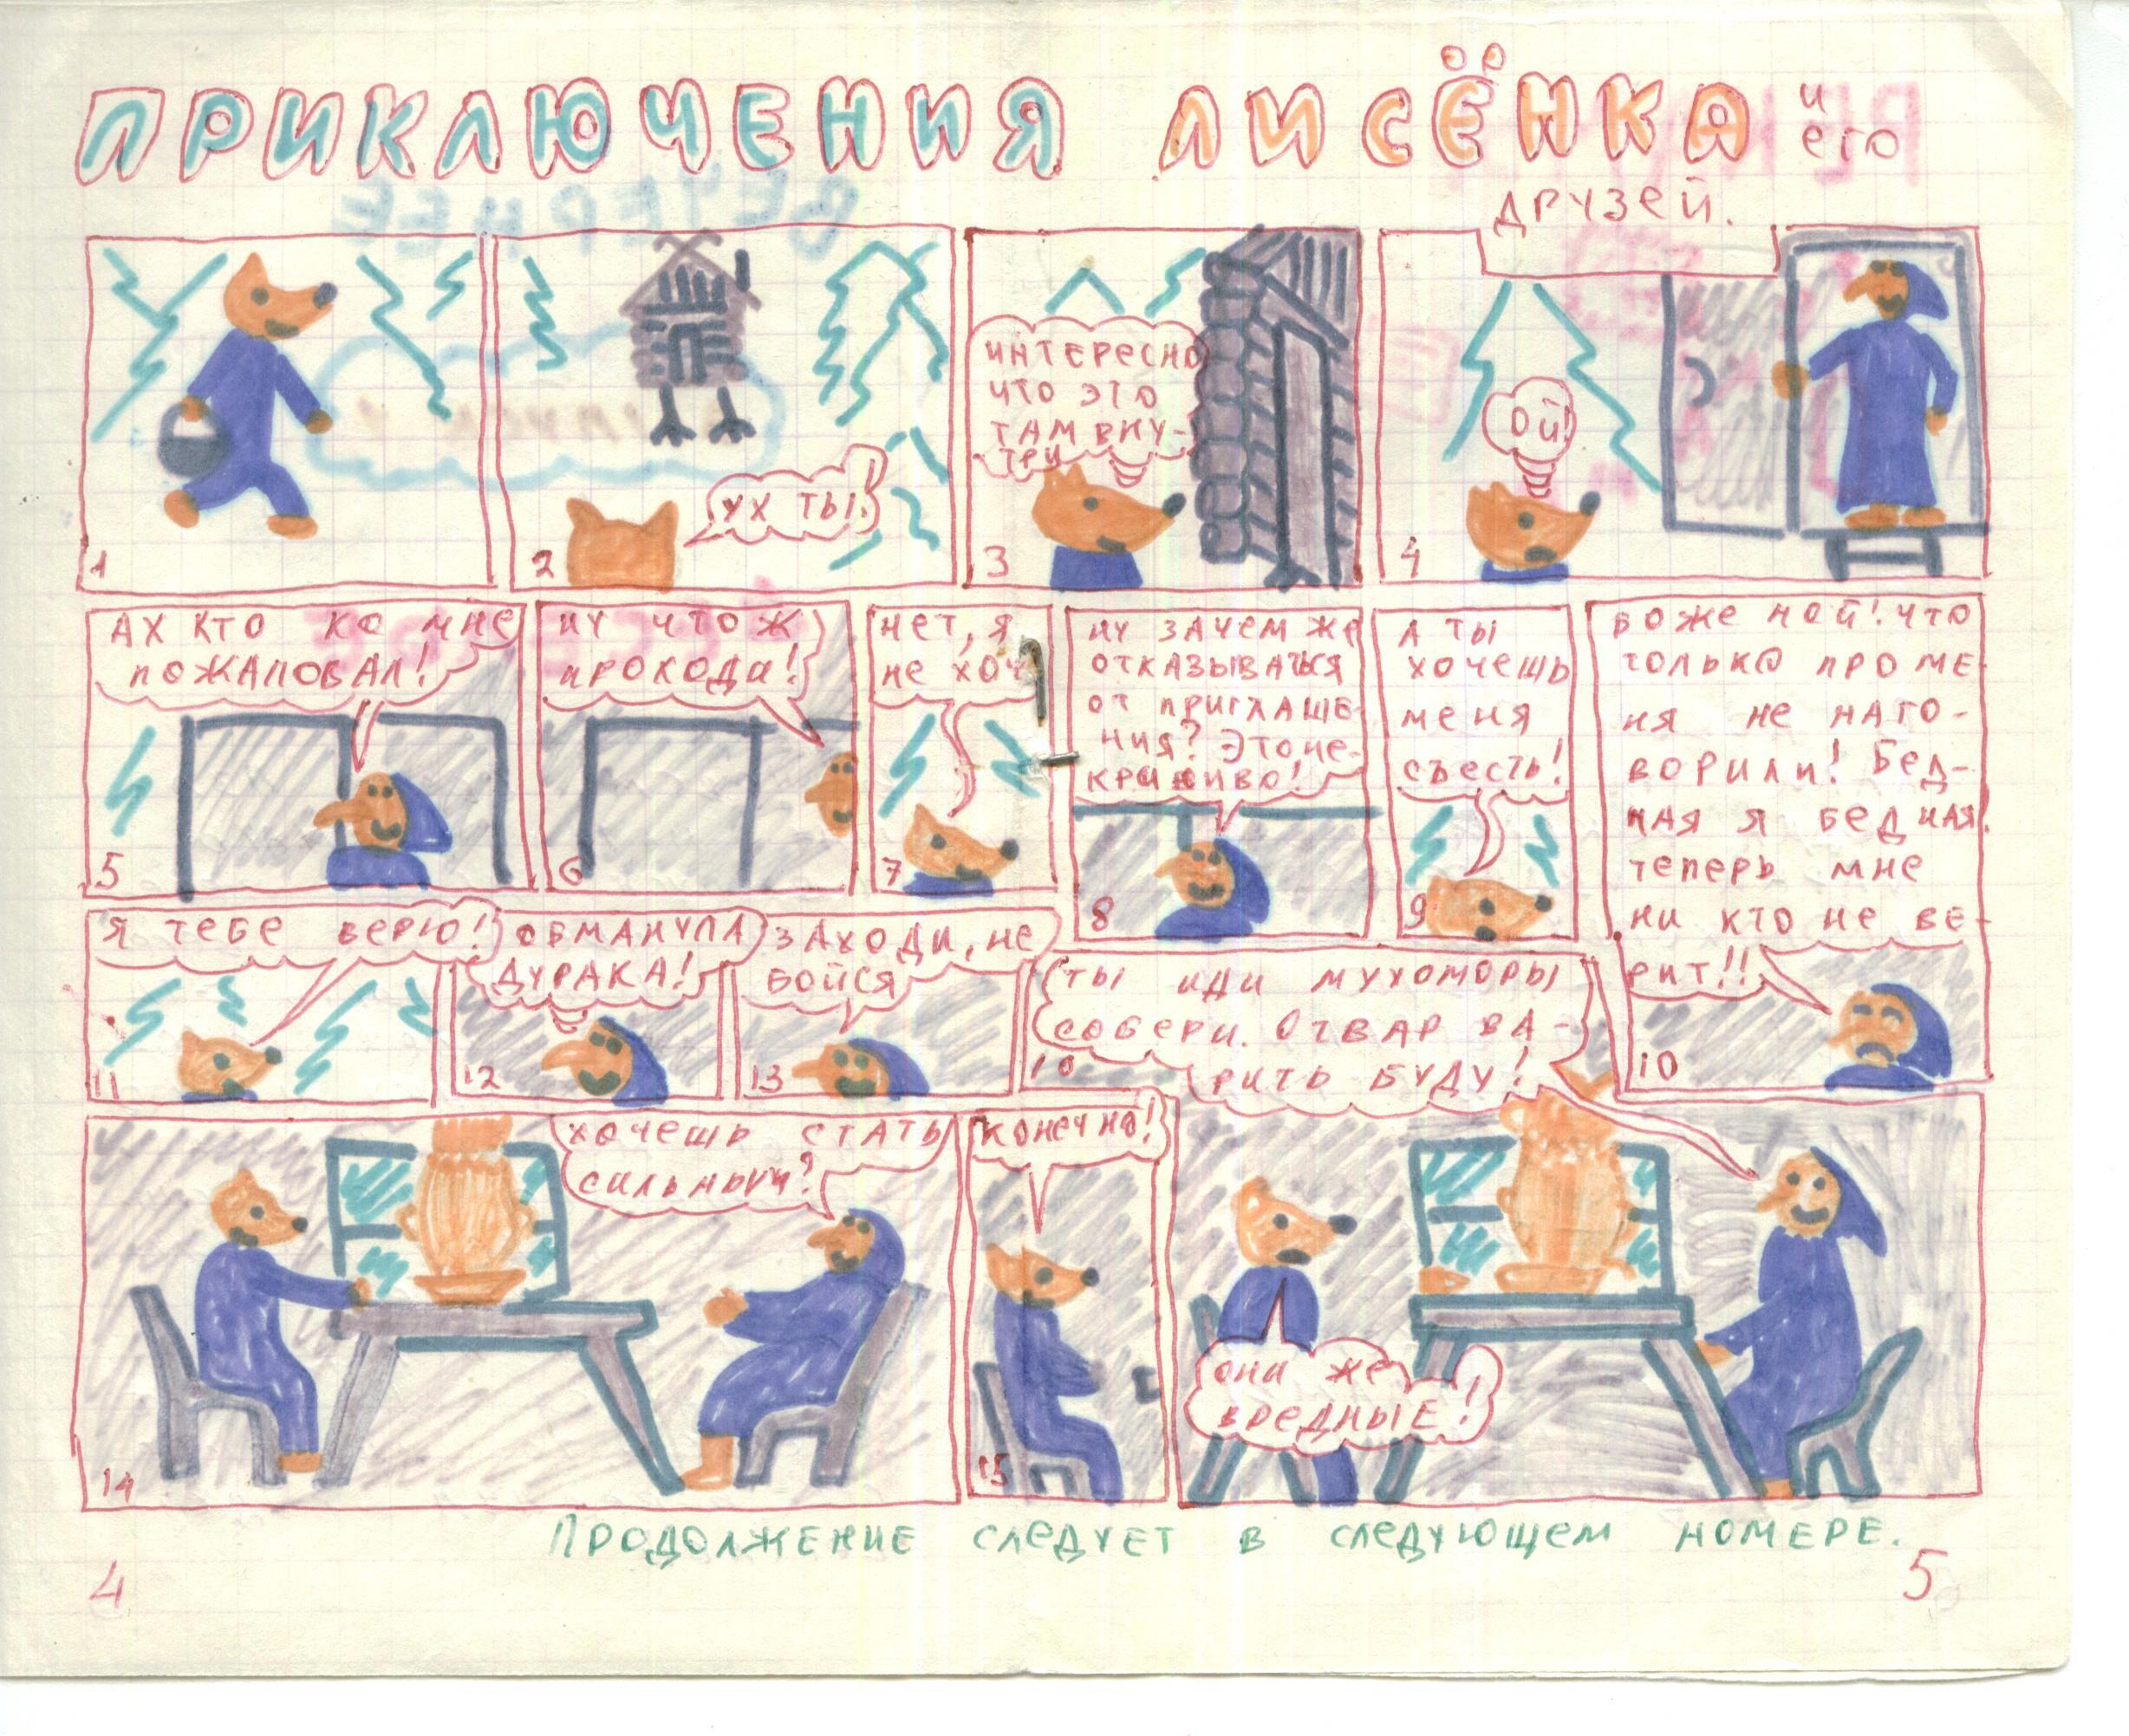 ПРИКЛЮЧЕНИЯ ЛИСЁНКА и
его
друзей.
1
2
УХ ТЫ!
3
ИНТЕРЕСНО
ЧТО ЭТО
ТАМ ВНУ-
ТРИ
4
ОЙ!
АХ КТО КО МНЕ
ПОЖАЛОВАЛ!
5
НУ ЧТО Ж
ПРОХОДИ!
6
НЕТ, Я
НЕ ХОЧ
7
НУ ЗАЧЕМ ЖЕ
ОТКАЗЫВАТЬСЯ
ОТ ПРИГЛАШЕ-
НИЯ? ЭТО НЕ-
КРАСИВО!
8
А ТЫ
ХОЧЕШЬ
МЕНЯ
СЪЕСТЬ!
9
БОЖЕ МОЙ! ЧТО
ТОЛЬКО ПРО МЕ-
НЯ НЕ НАГО-
ВОРИЛИ! БЕД-
НАЯ Я БЕДНАЯ.
ТЕПЕРЬ МНЕ
НИ КТО НЕ ВЕ-
РИТ!!
10
Я ТЕБЕ ВЕРЮ!
11
ОБМАНУЛА
ДУРАКА!
12
ЗАХОДИ, НЕ
БОЙСЯ
13
ХОЧЕШЬ СТАТЬ
СИЛЬНЫМ?
14
КОНЕЧНО!
15
ТЫ ИДИ МУХОМОРЫ
СОБЕРИ. ОТВАР ВА-
РИТЬ БУДУ!
ОНИ ЖЕ
ВРЕДНЫЕ!
ПРОДОЛЖЕНИЕ СЛЕДУЕТ В СЛЕДУЮЩЕМ НОМЕРЕ.
4
5